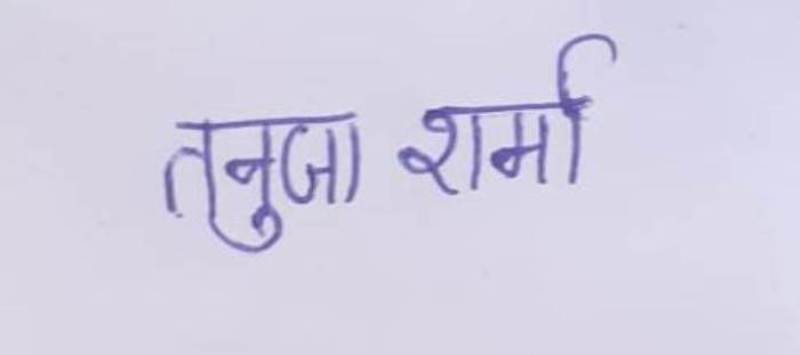 तनुजा शर्मा